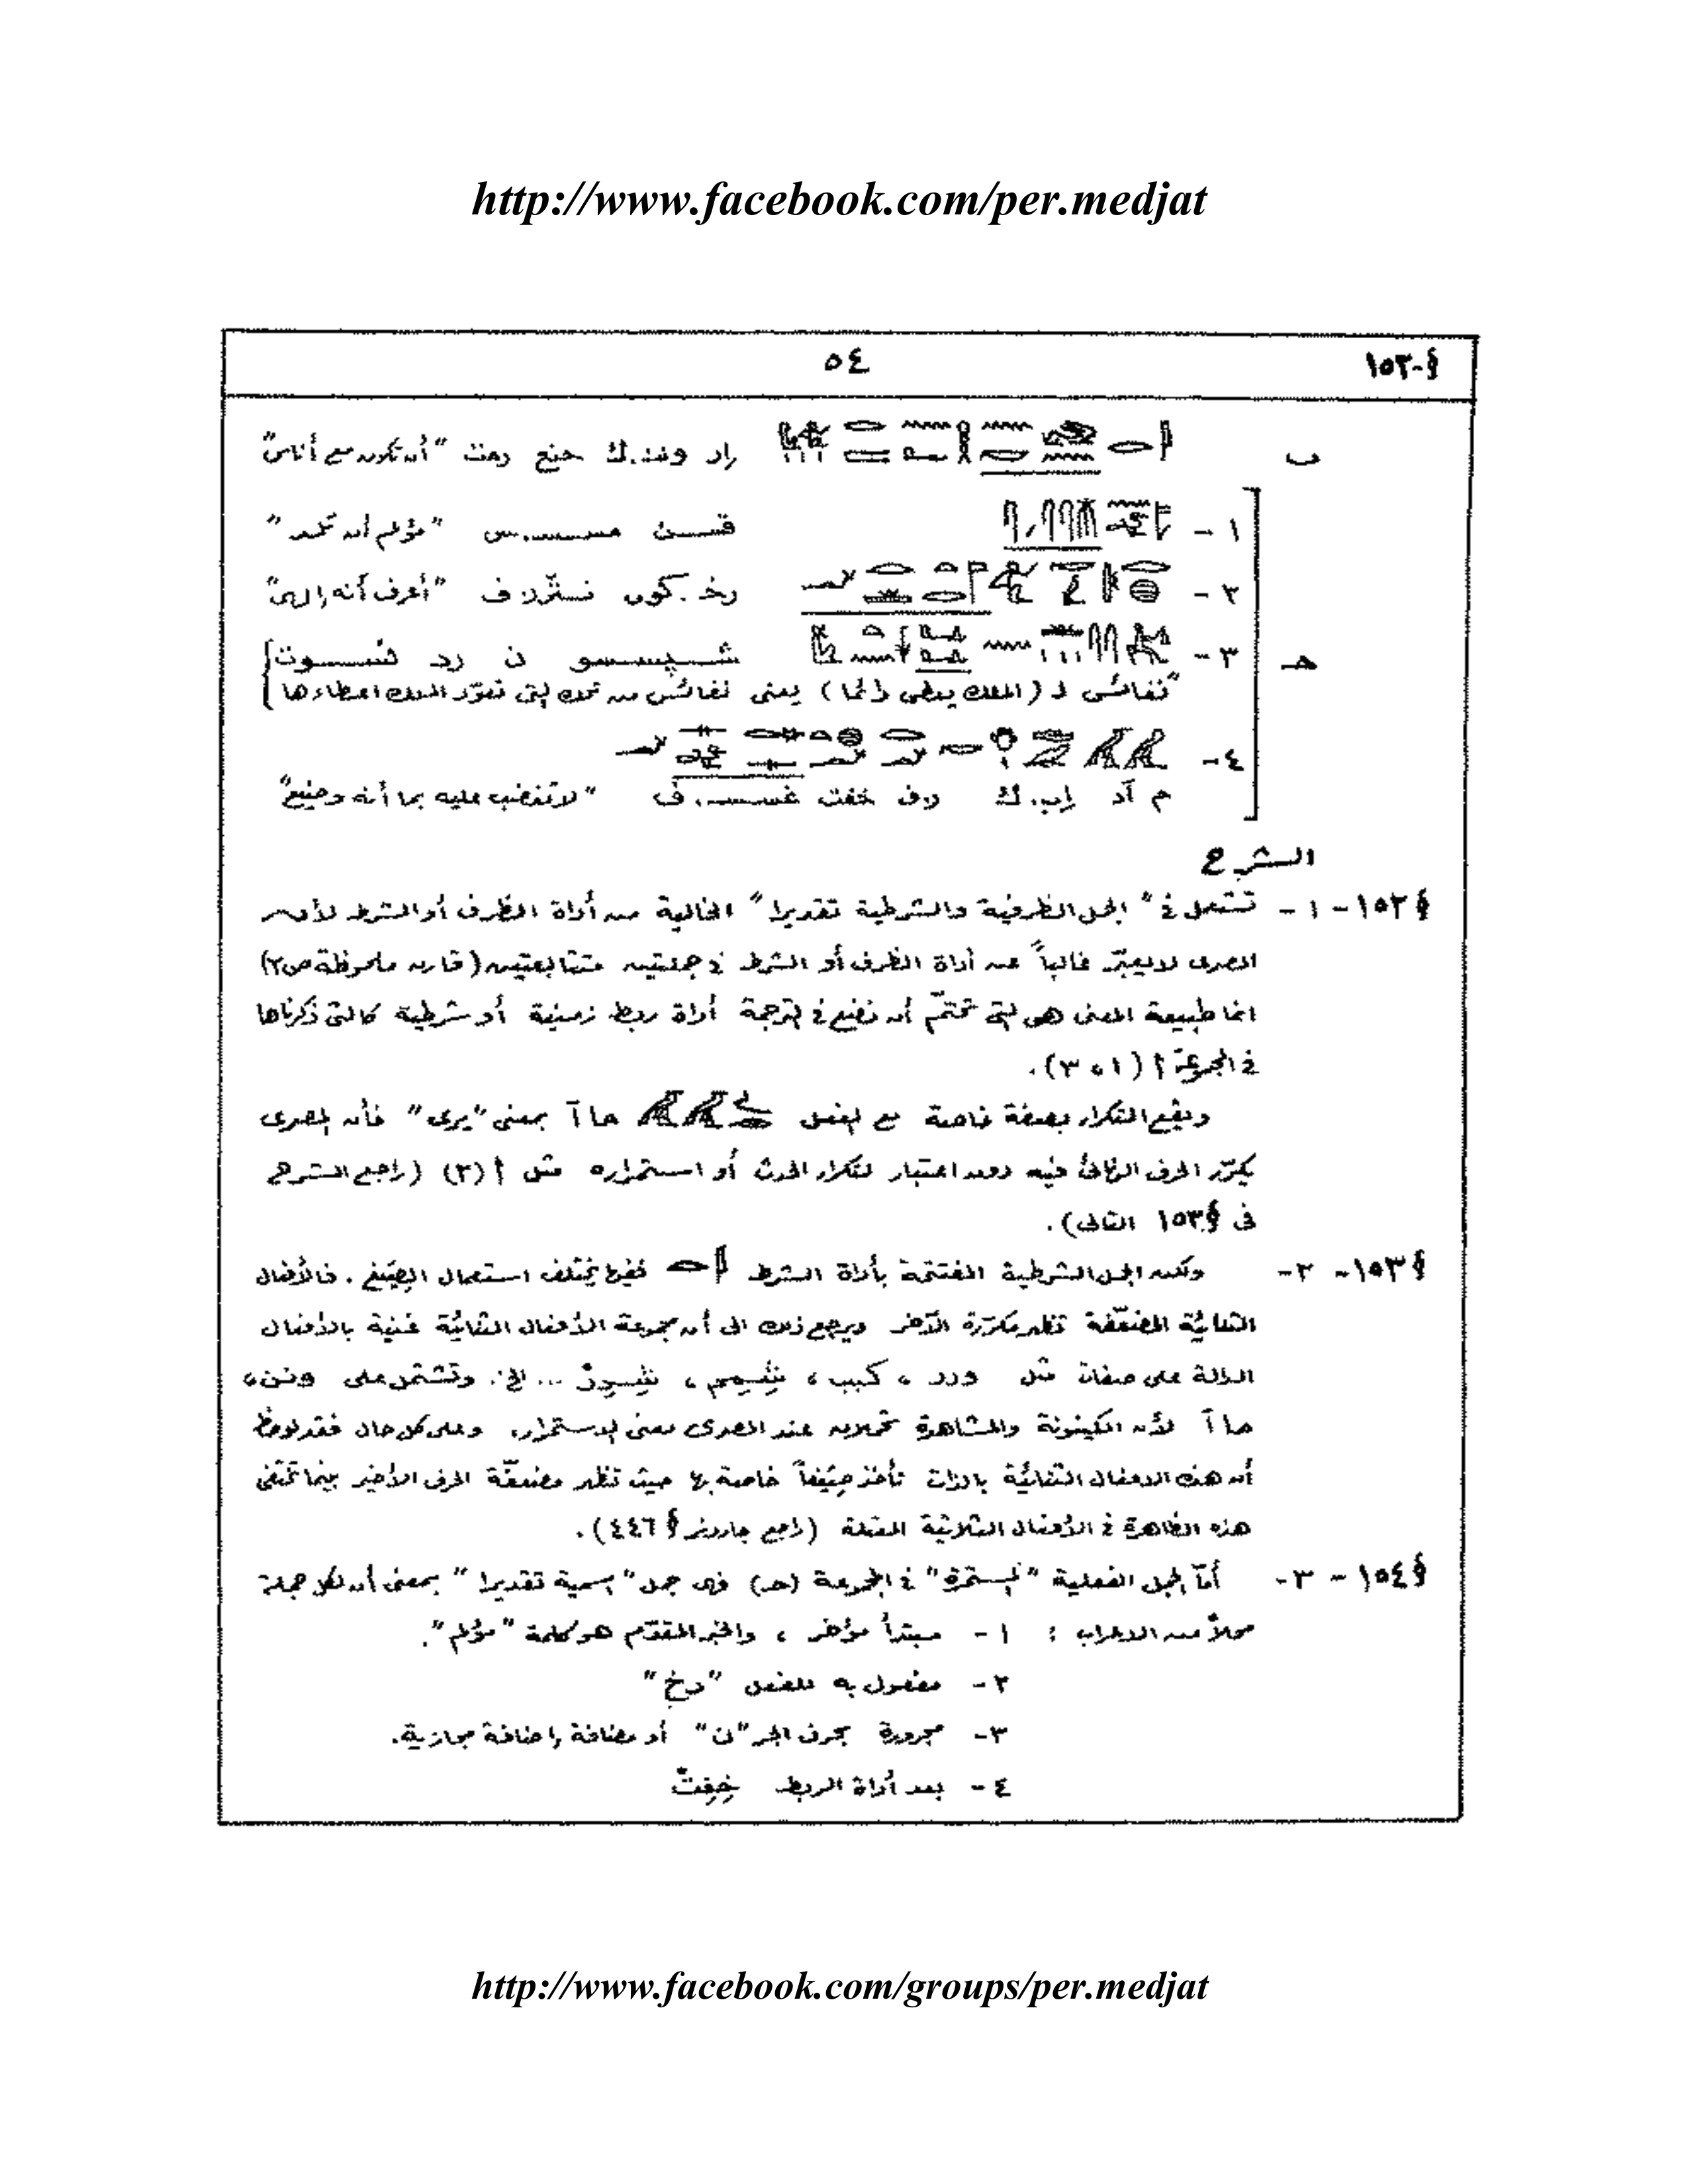 http://www.facebook.com/per.medjat
§-١٥٢ ٥٤
ب إر ونن.ك حنع رمث "أن تكون مع أناس"
١- قسن مسس.س "مؤلم أن تلد"
٢- رخ.كون "أعرف أنه إلهى"
هـ ٣- شبسسو ن دد نسوت
"نفائس لـ (الملك يعطى دائما) يعنى نفائس من تلك التى تعوّد الملك اعطاءها
٤-
م آد إب.ك ر.ف خفت غسس.ف "لا تغضب عليه بما أنه وضيع"
الشرح
§ ١٥٢- ١- تستعمل فى "الجمل الظرفية والشرطية تقديرا" الخالية من أداة الظرف أو الشرط لأن
المصرى لا يعبّر غالباً عن أداة الظرف أو الشرط فى جملتين متتابعتين (قارن ملحوظة ص٢)
انما طبيعة المعنى هى التى تحتّم أن نضع فى الترجمة أداة ربط زمنية أو شرطية كالتى ذكرناها
فى المجموعة أ (١، ٣).
ويقع التكرار بصفة خاصة مع الفعل مأآ بمعنى "يرى" فأن المصرى
يكرّر الحرف الثانى فيه دون اعتبار لتكرار الحدث أو استمراره مثل أ (٢) (راجع الشرح
فى § ١٥٣ التالى).
§ ١٥٣- ٢- ولكن الجمل الشرطية المفتتحة بأداة الشرط ففيها يختلف استعمال الصيغ. فالأفعال
الثنائية المضعّفة تظهر مكررة الآخر ويرجع ذلك الى أن مجموعة الأفعال الثنائية غنية بالأفعال
الدالة على صفات مثل ، قبب ، ... الخ. وتشتمل على ونن ،
مأآ لأن الكينونة والمشاهدة تحملان عند المصرى معنى الاستمرار. وعلى كل حال فقد لوحظ
أن هذه الافعال الثنائية بالذات تأخذ صيغاً خاصة بها حيث تظهر مضعّفة الحرف الأخير بينما تختفى
هذه الظاهرة فى الأفعال الثلاثية المعتلة (راجع جاردنر § ٤٤٦).
§ ١٥٤- ٣- أمّا الجمل الفعلية "المستمرة" فى المجموعة (هـ) فهى جمل "اسمية تقديرا" بمعنى أن لكل جملة
محلاً من الاعراب : ١- مبتدأ مؤخر ، والخبر المقدّم هو كلمة "مؤلم".
٢- مفعول به للفعل "رخ"
٣- مجرورة بحرف الجر "ن" أو مضافة إضافة مجازية.
٤- بعد أداة الربط خفت
http://www.facebook.com/groups/per.medjat